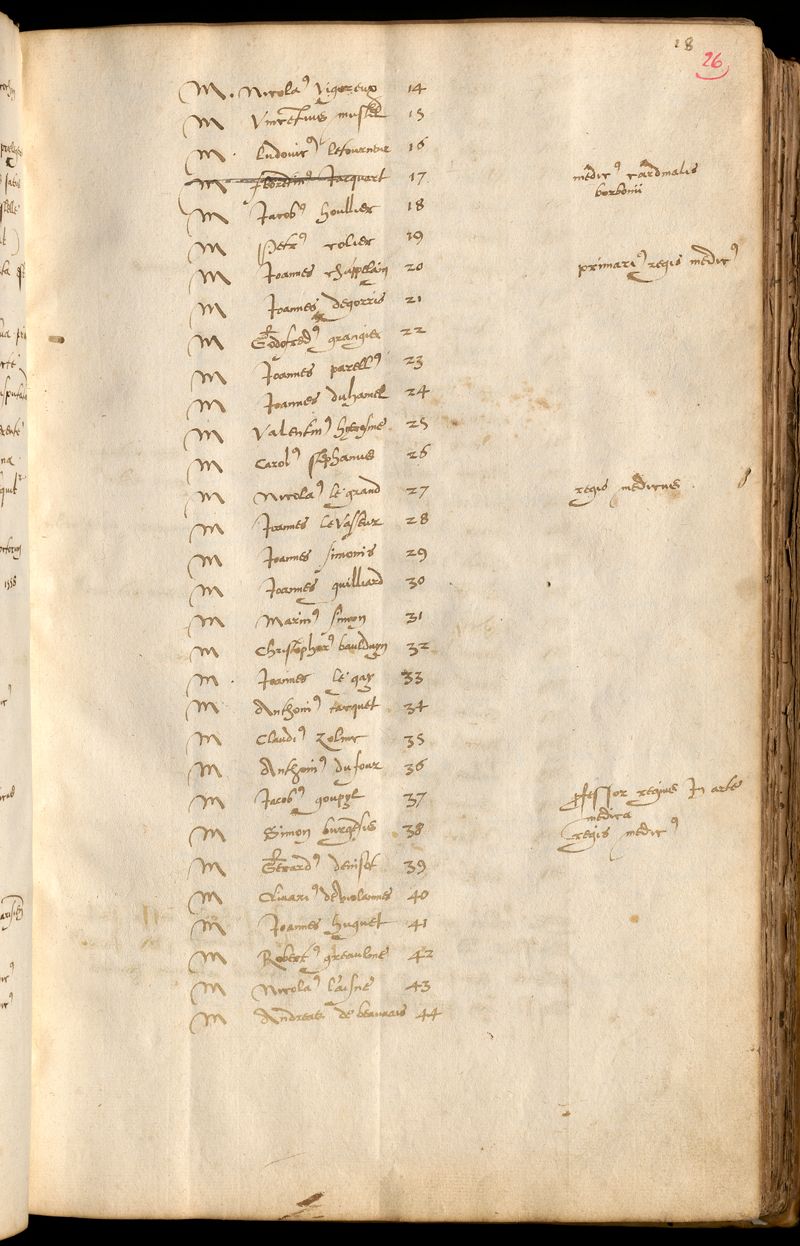 18
26
M. Nicola⁹ Vigoreux 14
M Vincētius mustel 15
M. Ludovic⁹ lefourneur 16
M Jacquart 17 medic⁹ cardinalis
borbonii
M Jacob⁹ houllier 18
M Petr⁹ colier 19
M Joannes chappelain 20 primari⁹ regis medic⁹
M Joannes degorris 21
M Godofred⁹ grangier 22
M Joannes parell⁹ 23
M Joannes duhamel 24
M Valentin⁹ hyerosme 25
M Carol⁹ stephanus 26
M Nicola⁹ le grand 27 regis medicus
M Joannes leVasseur 28
M Joannes simonis 29
M Joannes guilliard 30
M Marin⁹ simon 31
M Christophor⁹ baulduyn 32
M. Joannes le gay 33
M Anthoni⁹ tacquet 34
M Claudi⁹ 35
M Anthoni⁹ dufour 36
M Jacob⁹ goupyl 37 professor regius in arte
medica
M Simon burgēsis 38 regis medic⁹
M Gerard⁹ deniset 39
M 40
M Joannes huguet 41
M Robert⁹ greaulme 42
M Nicola⁹ 43
M Andreas de beauvais 44